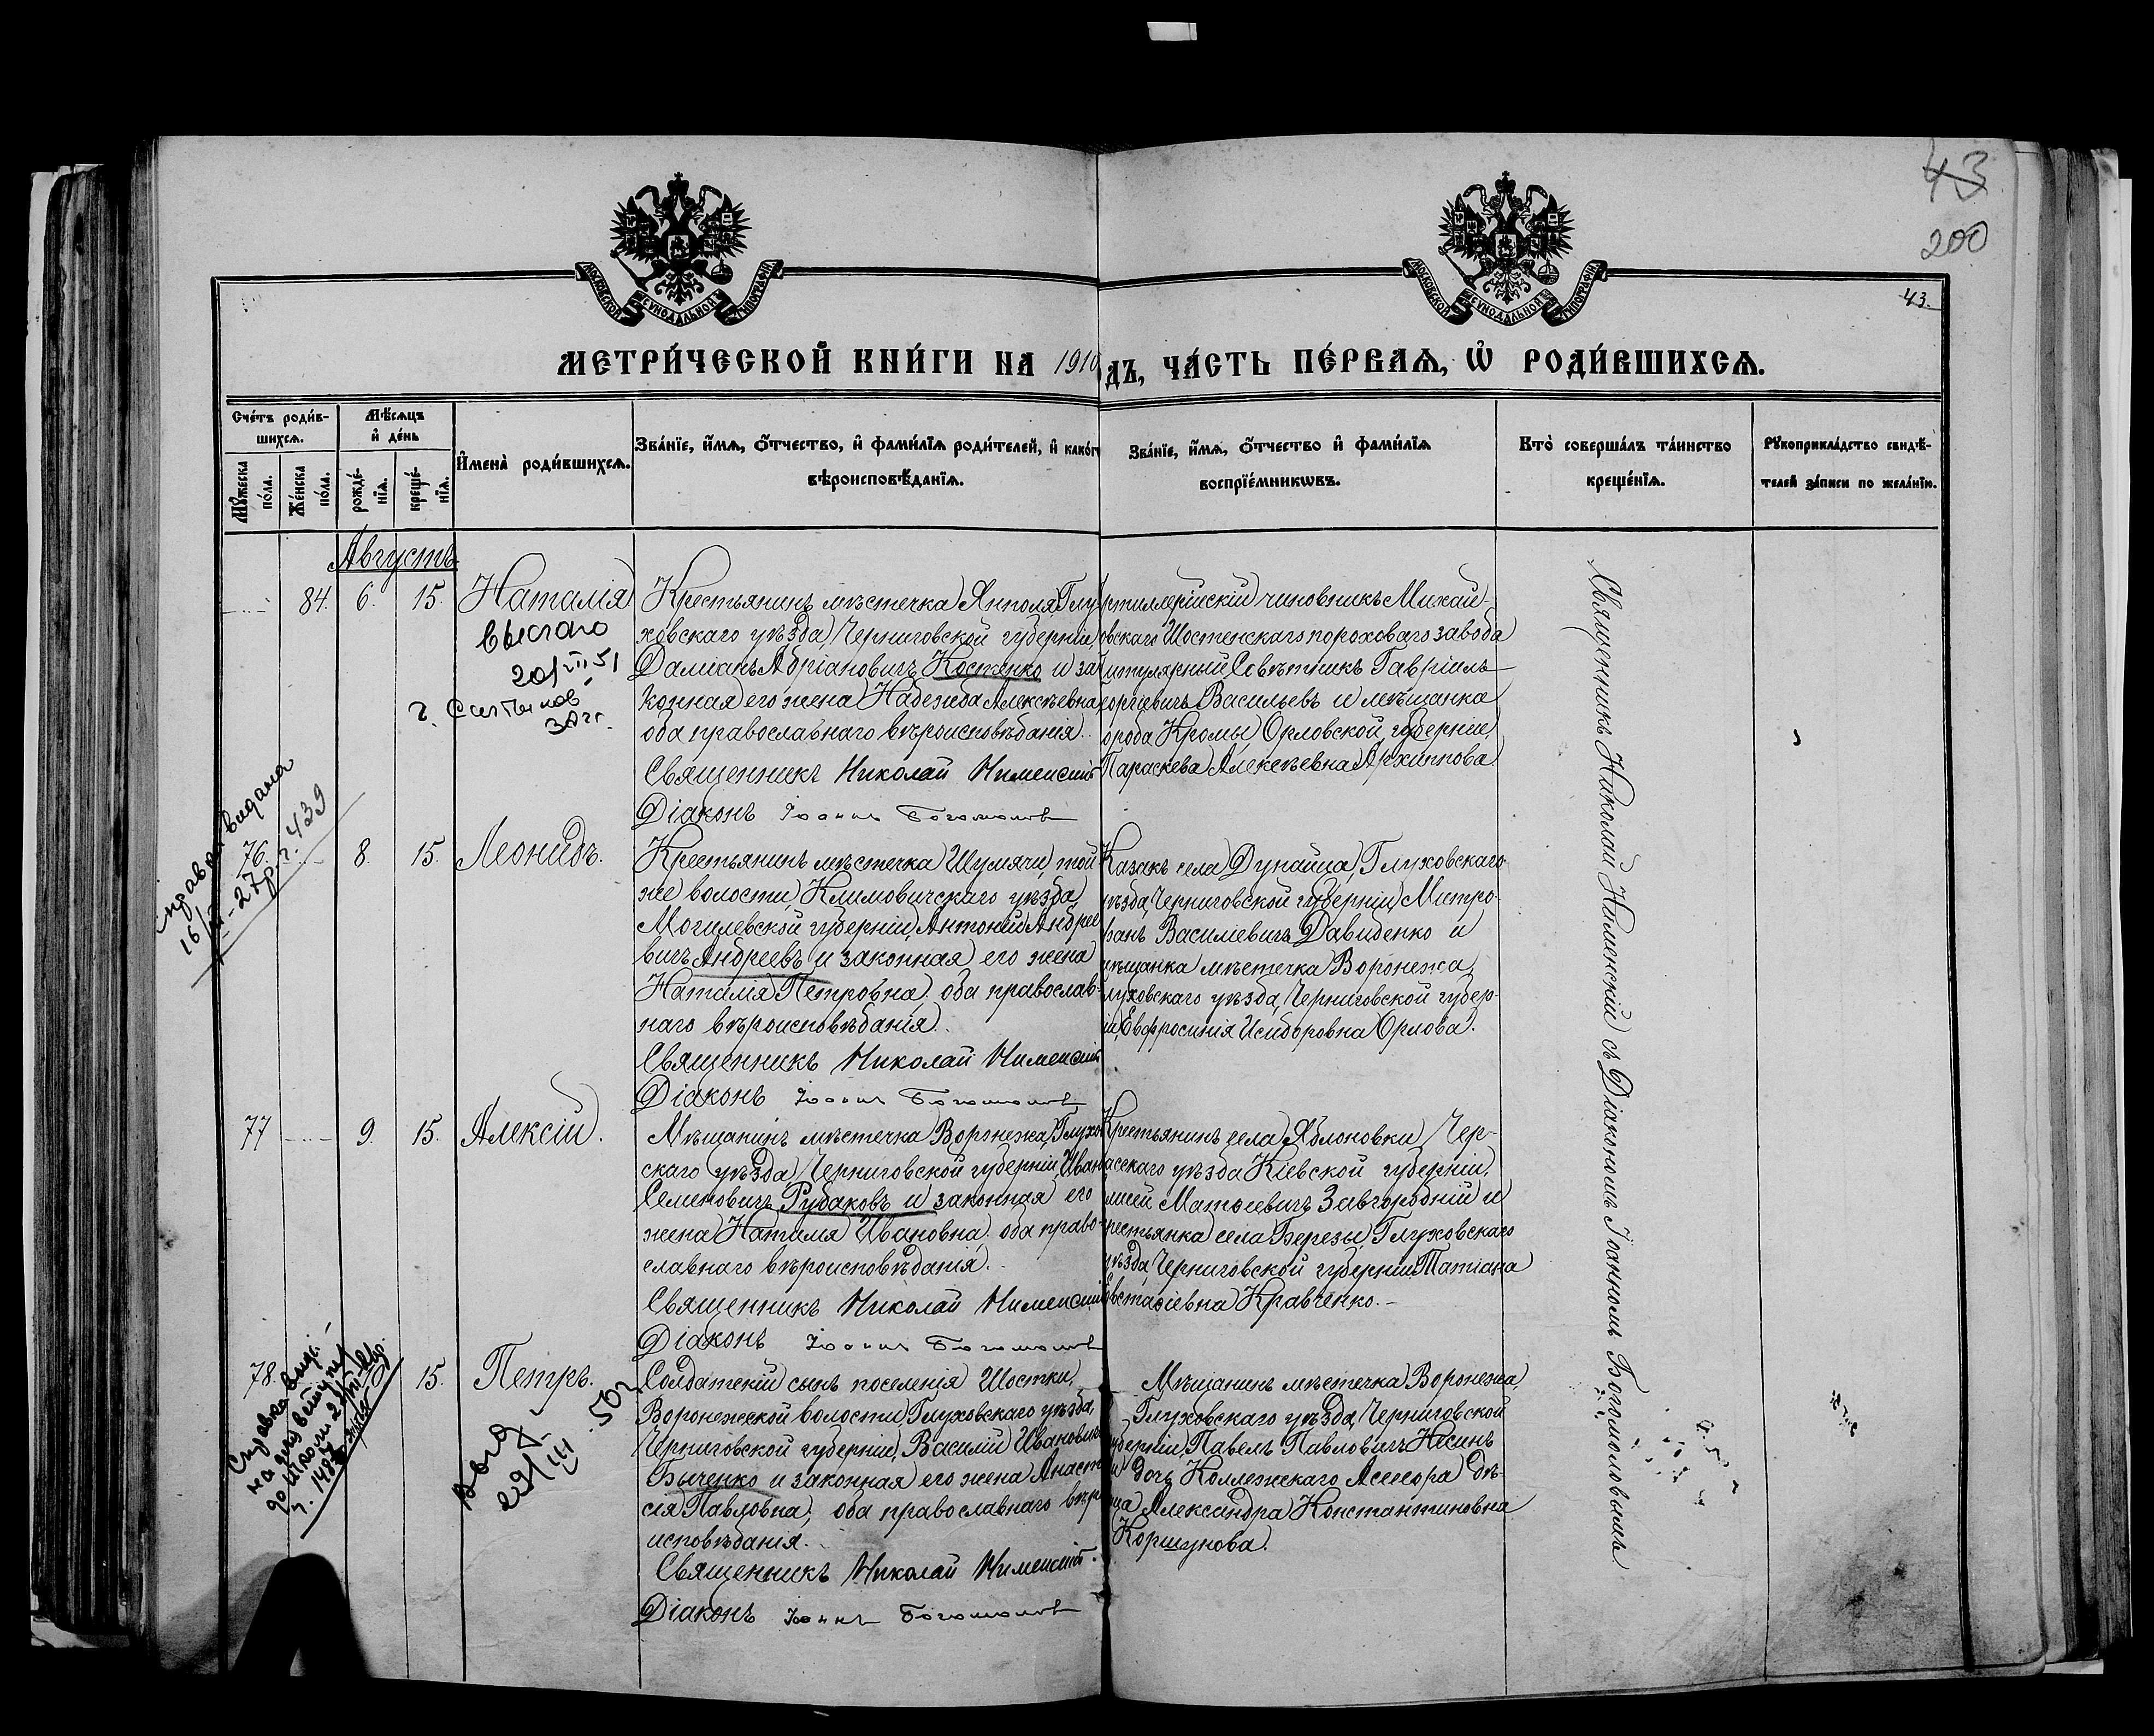 43
200
43.
МОСКОВСКОЙ СѴНОДАЛЬНОЙ ТИПОГРАФІИ
МОСКОВСКОЙ СѴНОДАЛЬНОЙ ТИПОГРАФІИ
МЕТРИ́ЧЕСКОЙ КНИ́ГИ НА 1910 ДЪ, ЧА́СТЬ ПЕ́РВАѦ, Ѡ҆ РОДИ́ВШИХСѦ.
Сче́тъ роди́в-
шихсѧ.
Мѣ́сѧцъ
и҆ де́нь
Мꙋ́жеска по́ла.
Же́нска по́ла.
рожде́-
нїѧ.
креще́-
нїѧ.
И҆мена̀ роди́вшихсѧ.
Зва́нїе, и҆́мѧ, ѻ҆́тчество, и҆ фами́лїѧ роди́телей, и҆ како́г
вѣроисповѣ́данїѧ.
Зва́нїе, и҆́мѧ, ѻ҆́тчество и҆ фами́лїѧ
воспрїе́мникѡвъ.
Кто̀ соверша́лъ та́инство
креще́нїѧ.
Рꙋкоприкла́дство свидѣ́-
телей за́писи по жела́нїю.
Августъ
84. 6. 15. Наталія
20/VII 51
Крестьянинъ мѣстечка Янполя, Глу
ховскаго уѣзда, Черниговской губерніи,
Даміанъ Адріановичъ Костенко и за
конная его жена Надежда Алексѣевна
оба православнаго вѣроисповѣданія.
Священникъ Николай
Діаконъ Іоаннъ Богомоловъ
ртиллерійскій чиновникъ Михай-
овскаго Шостенскаго пороховаго завода
итулярный Совѣтникъ Гавріилъ
еоргіевичъ Васильевъ и мѣщанка
орода Кромы Орловской губерніи,
Параскева Алексѣевна Архиппова
справка видана
ч. 439
76. 8. 15. Леонидъ.
Крестьянинъ мѣстечка Шумячи, той
же волости, Климовичскаго уѣзда,
Могилевской губерніи, Антоній Андрее
вичъ Андреевъ и законная его жена
Наталія Петровна, оба православ-
наго вѣроисповѣданія.
Священникъ Николай
Діаконъ Іоаннъ Богомоловъ
Казакъ села Дунайца, Глуховскаго
уѣзда, Черниговской губерніи, Митро-
фанъ Василіевичъ Давиденко и
мѣщанка мѣстечка Воронежа,
луховскаго уѣзда, Черниговской губер-
іи, Евфросинія Исидоровна Орлова.
77 9. 15. Алексій.
Мѣщанинъ мѣстечка Воронежа, Глухо
скаго уѣзда, Черниговской губерніи, Иван
Семеновичъ Рудаковъ и законная его
жена Наталія Ивановна, оба право-
славнаго вѣроисповѣданія.
Священникъ Николай
Діаконъ Іоаннъ Богомоловъ
Крестьянинъ села Яблоновки Чер-
касскаго уѣзда Кіевской губерніи,
Матѳіевичъ Завгородній и
рестьянка села Березы, Глуховскаго
уѣзда, Черниговской губерніи, Татіана
Евстаѳіевна Кравченко.-
78. 15. Петръ.
Справка
ч. 1487
Солдатскій сынъ поселенія Шостки,
Воронежской волости, Глуховскаго уѣзда,
Черниговской губерніи, Василій Иванович
Быченко и законная его жена Анаста
сія Павловна, оба православнаго вѣро
исповѣданія.
Священникъ Николай
Діаконъ Іоаннъ Богомоловъ
Мѣщанинъ мѣстечка Воронежа,
Глуховскаго уѣзда, Черниговской
уберніи, Павелъ Павловичъ Носинъ
и дочь Коллежскаго Асессора дѣ-
ица Александра Константиновна
Коршунова.
Священникъ Николай съ Діакономъ Іоанномъ Богомоловымъ